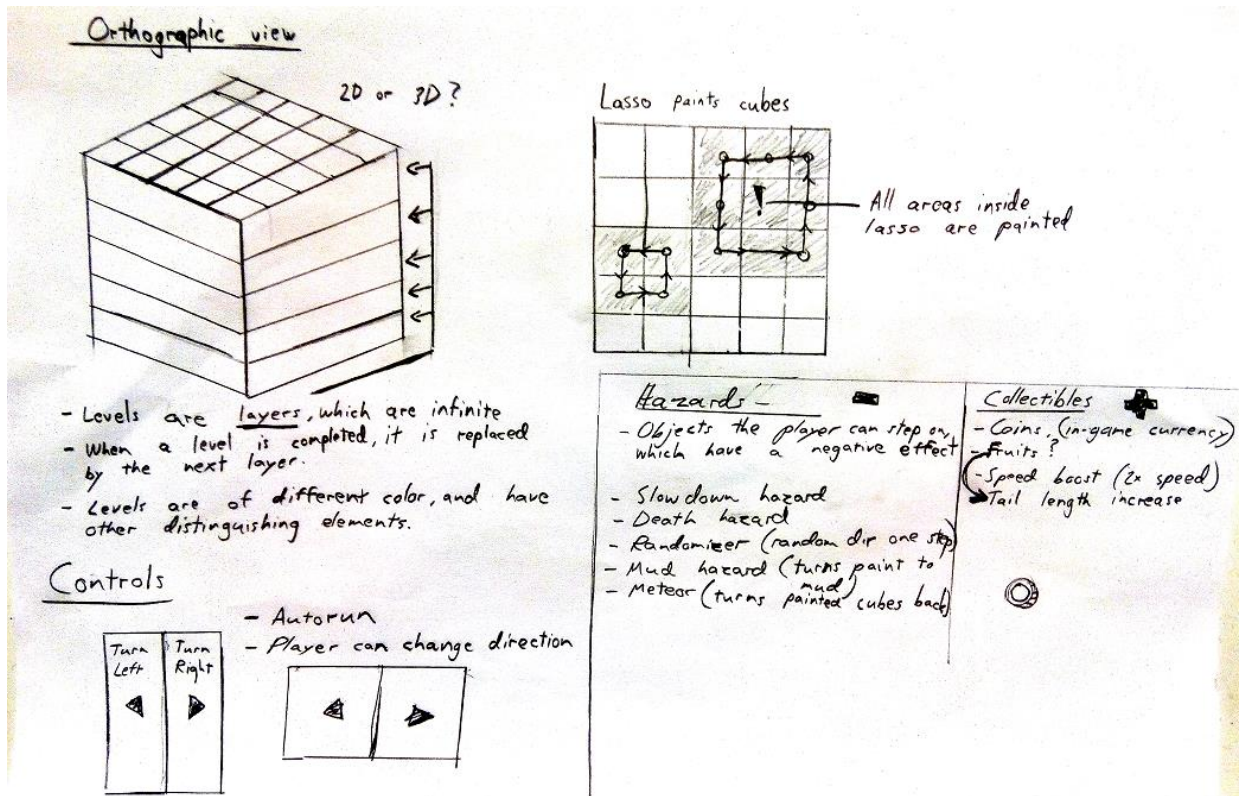 Orthographic view
2D or 3D?
- Levels are layers, which are infinite
- When a level is completed, it is replaced
by the next layer.
- Levels are of different color, and have
other distinguishing elements.
Controls
Turn Left
Turn Right
- Autorun
- Player can change direction
Lasso paints cubes
!
All areas inside
lasso are painted
Hazards -
- Objects the player can step on,
which have a negative effect
- Slowdown hazard
- Death hazard
- Randomizer (random dir one step)
- Mud hazard (turns paint to
mud)
- Meteor (turns painted cubes back)
Collectibles
- Coins, (in-game currency)
- Fruits?
- Speed boost (2x speed)
Tail length increase